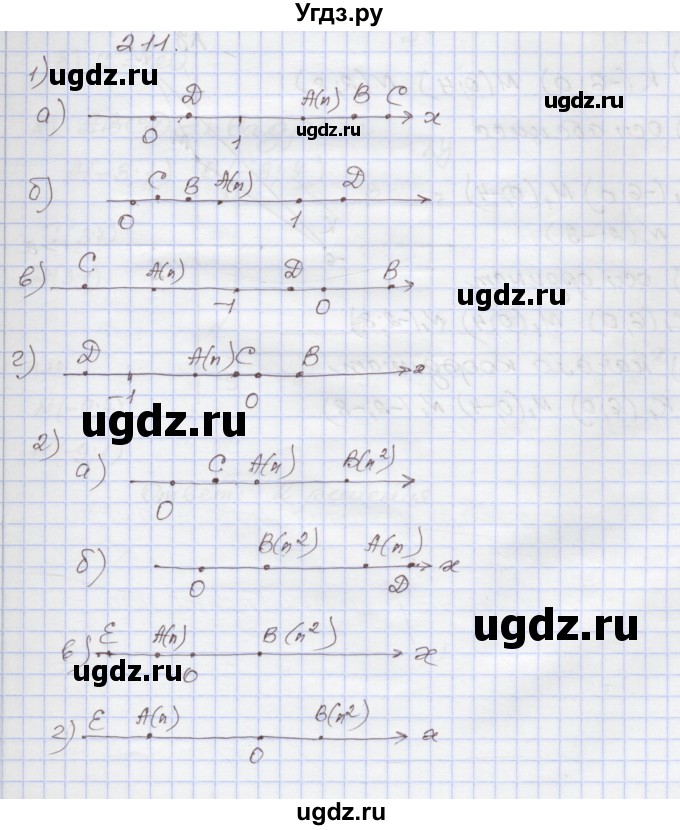 Угдз.ру
211.
1)
ugdz.ru
ugdz.ru
а) D A(n) B C
0 1 x
ugdz.ru
б) C B A(n) D
0 1
в) C A(n) D B
-1 0
ugdz.ru
г) D A(n) C B
-1 0 x
ugdz.ru
2)
а) C A(n) B(n²)
0
б) B(n²) A(n)
0 D x
ugdz.ru
в) E A(n) B(n²)
0 x
ugdz.ru
г) E A(n) B(n²)
0 x
ugdz.ru